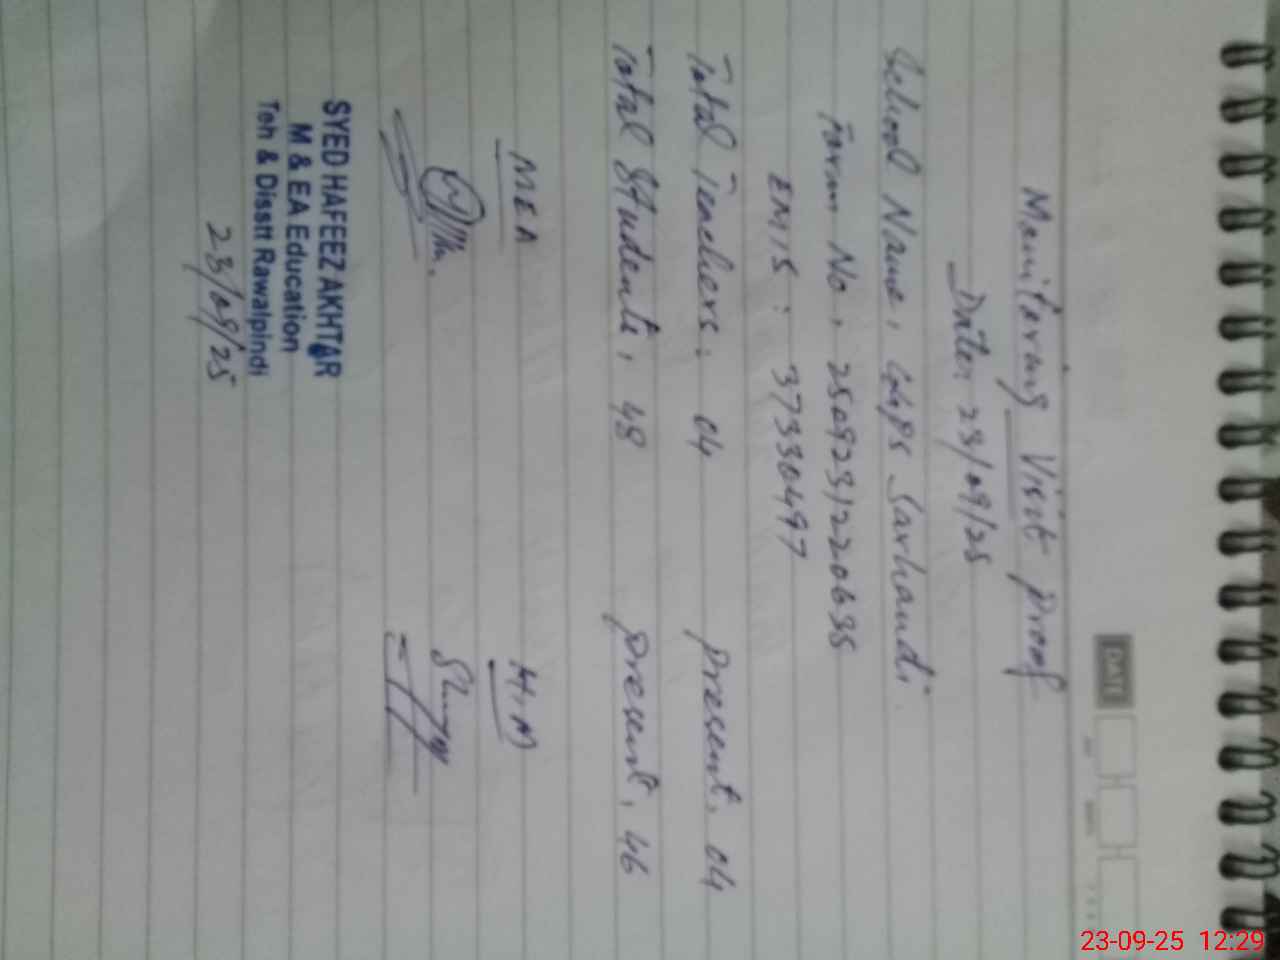 Monitoring Visit Proof
Date: 23/09/25
School Name: GGPS Sarhandi
Form No: 2509231220635
EMIS: 37330497
Total Teachers: 04 Present: 04
Total Students: 48 Present: 46
MEA H.M
SYED HAFEEZ AKHTAR
M & EA Education
Teh & Disstt Rawalpindi
23/09/25
DATE
23-09-25 12:29